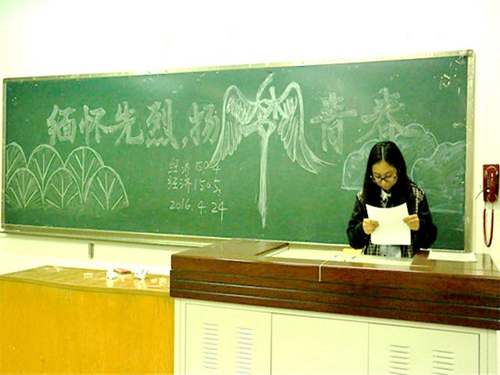 缅怀先烈,扬梦青春
经济1504
经济1505,
2016.4.24